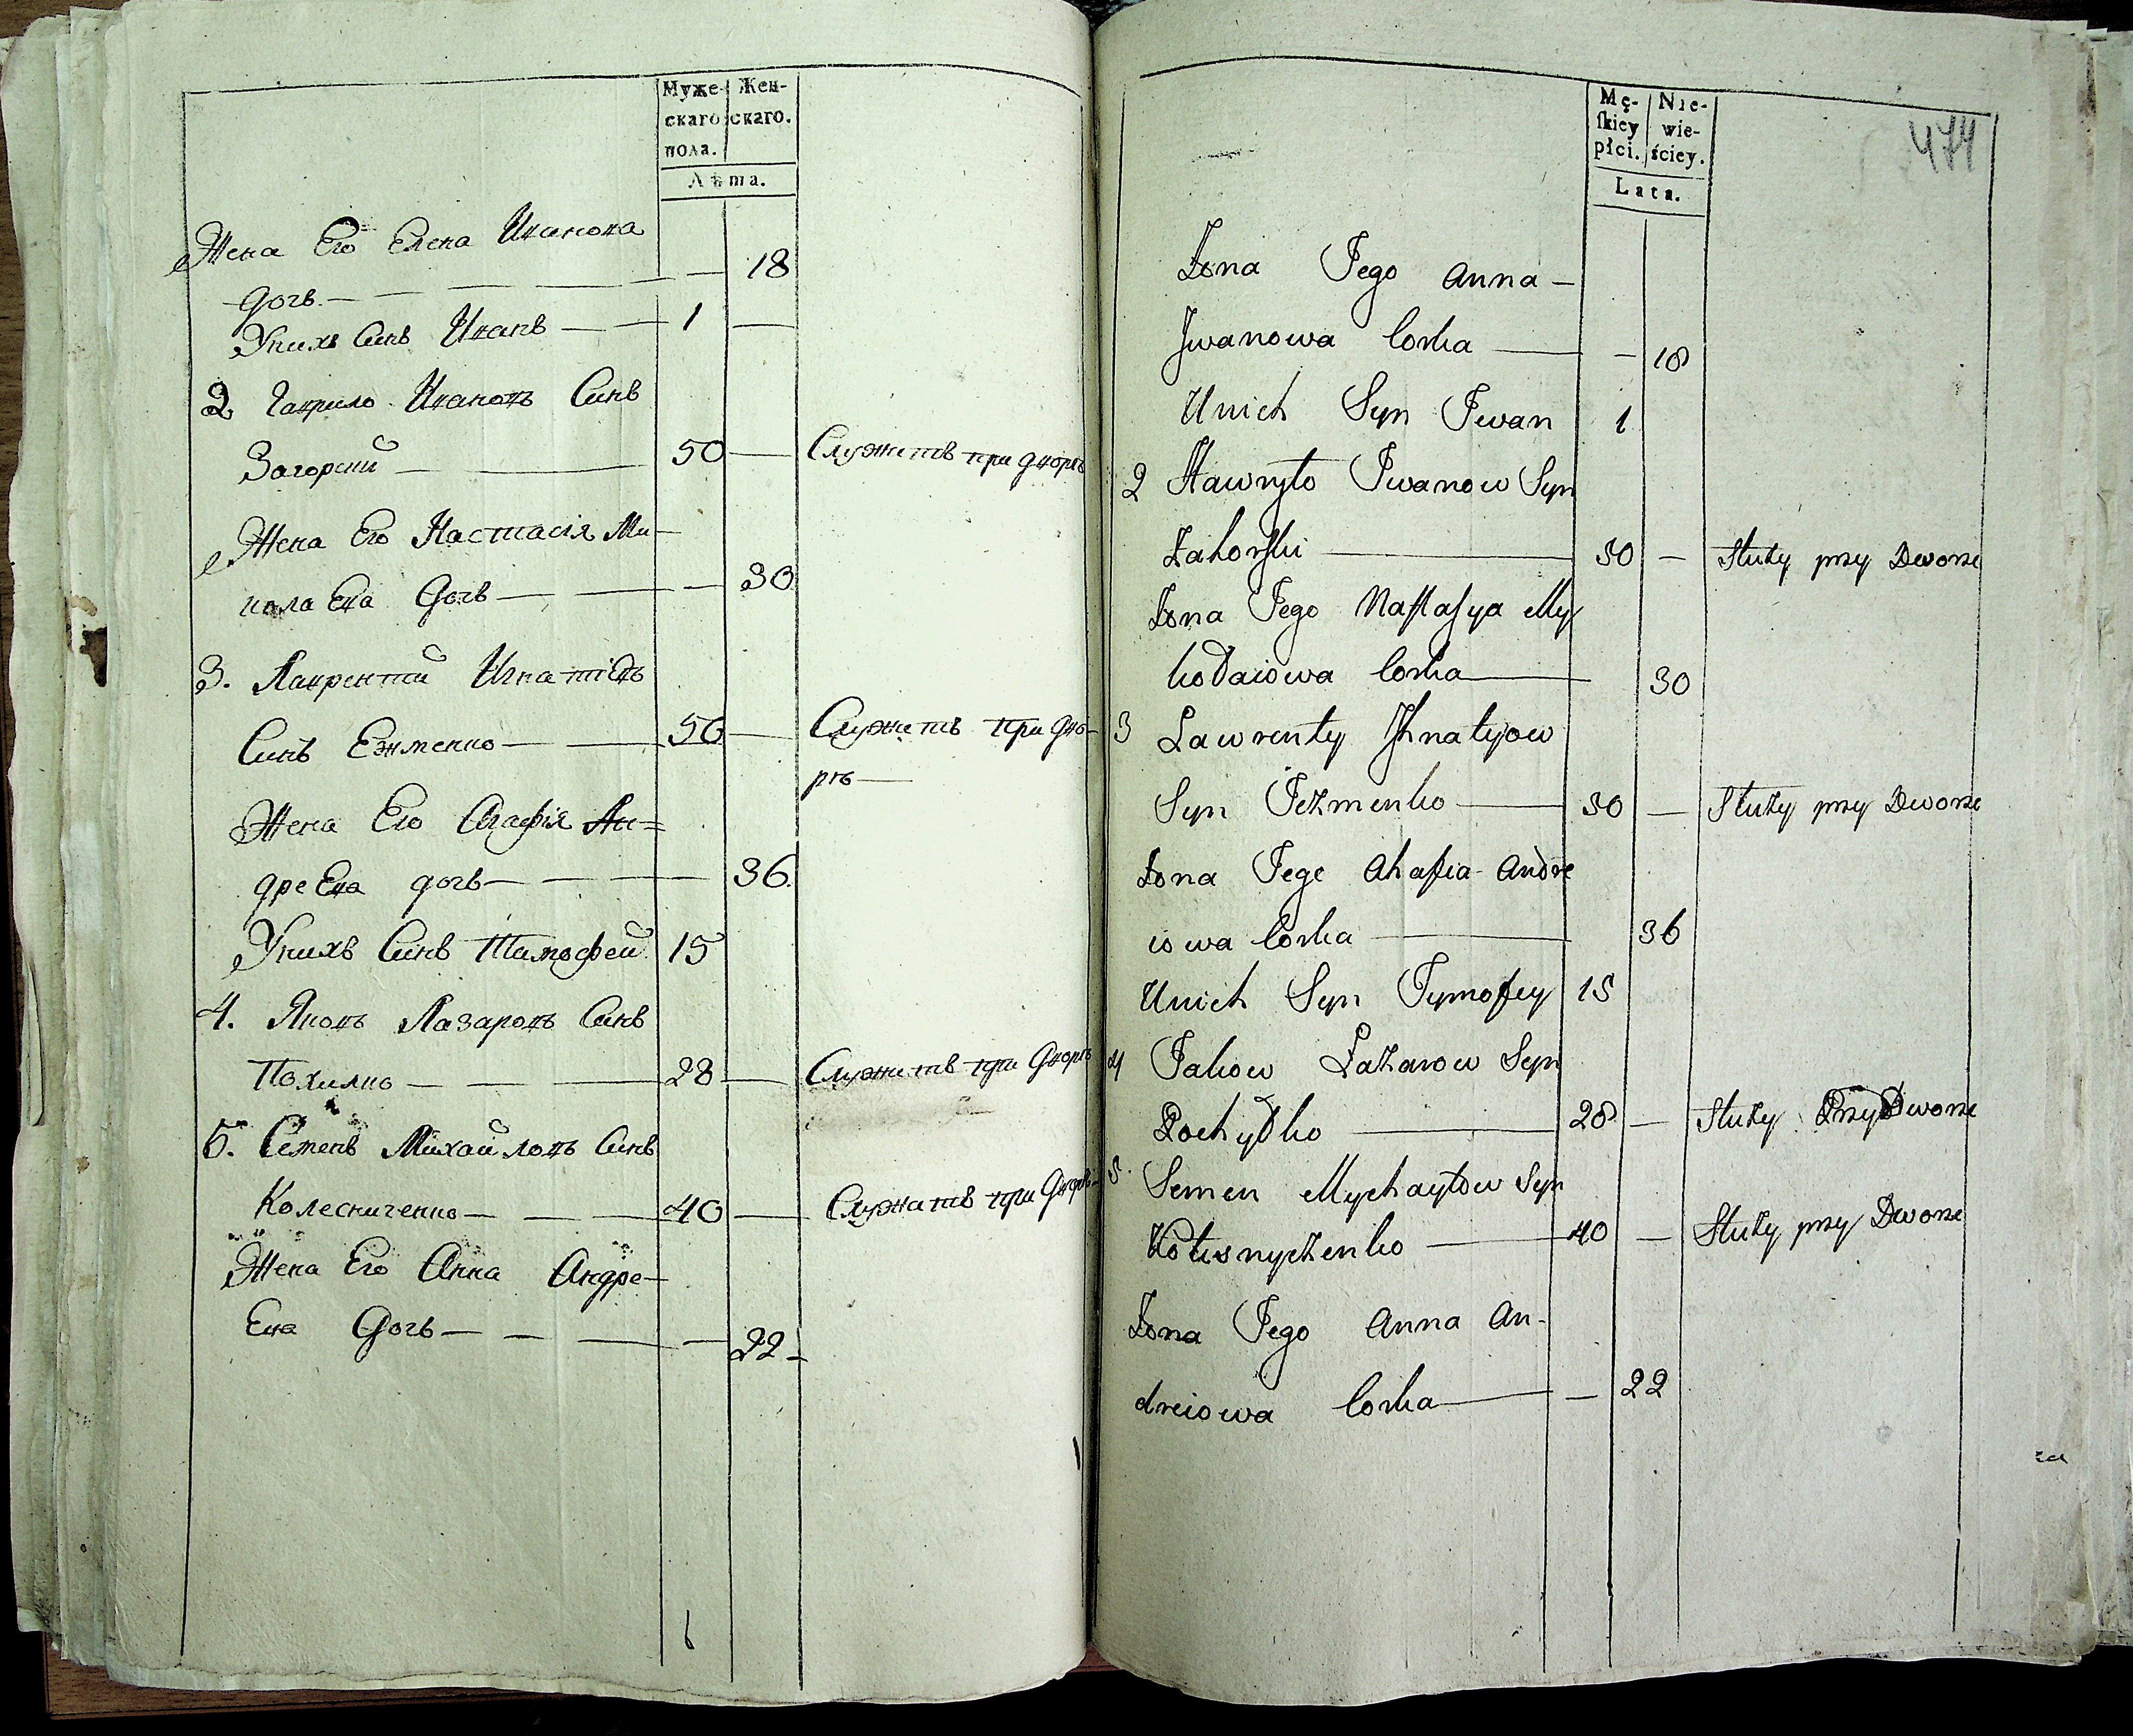 Муже-
скаго
пола.
Жен-
скаго.
Лѣта.
Жена Его Елена Иванова
дочь — — — — — 18
Унихъ Синъ Иванъ — — 1 —
2 Гаврило Ивановъ Синъ
Загорский — — 50 — Служитъ при дворѣ
Жена Его Настасія Ми-
кола Ева Дочь — — — 30
3. Лаврентий Игнатіевъ
Синъ Ежменко — — 50 — Служитъ при дво-
рѣ —
Жена Его Агафія Ан=
дре Ева дочь — — — 36.
Унихъ Синъ Тимофей 15
4. Яковъ Лазаровъ Синъ
Похилко — — — 28 — Служитъ при Дворѣ
5. Семенъ Михайловъ Синъ
Колесниченко — — — 40 — Служитъ при Дворѣ
Жена Его Анна Андре-
Ева Дочь — — — — 22 —
Mę-
ſkiey
płci.
Nie-
wie-
ściey.
Lata.
474
Żona Jego Anna —
Jwanowa Corka — — 18
Unich Syn Jwan 1
2 Hawryło Jwanow Syn
Zahorſki — 50 — Służy przy Dworze
Żona Jego Naſtaſya My
kołaiowa Corka — 30
3 Lawrenty Jhnatyow
Syn Jeżmenko — 50 — Służy przy Dworze
Żona Jego Ahafia Andre
iowa Corka — 36
Unich Syn Tymofiey 15
4 Jakow Łazarow Syn
Pochyłko — 28 — Służy Przy Dworze
5. Semen Mychayłow Syn
Kolesnyczenko — 40 — Służy przy Dworze
Żona Jego Anna An-
dreiowa Corka — — 22